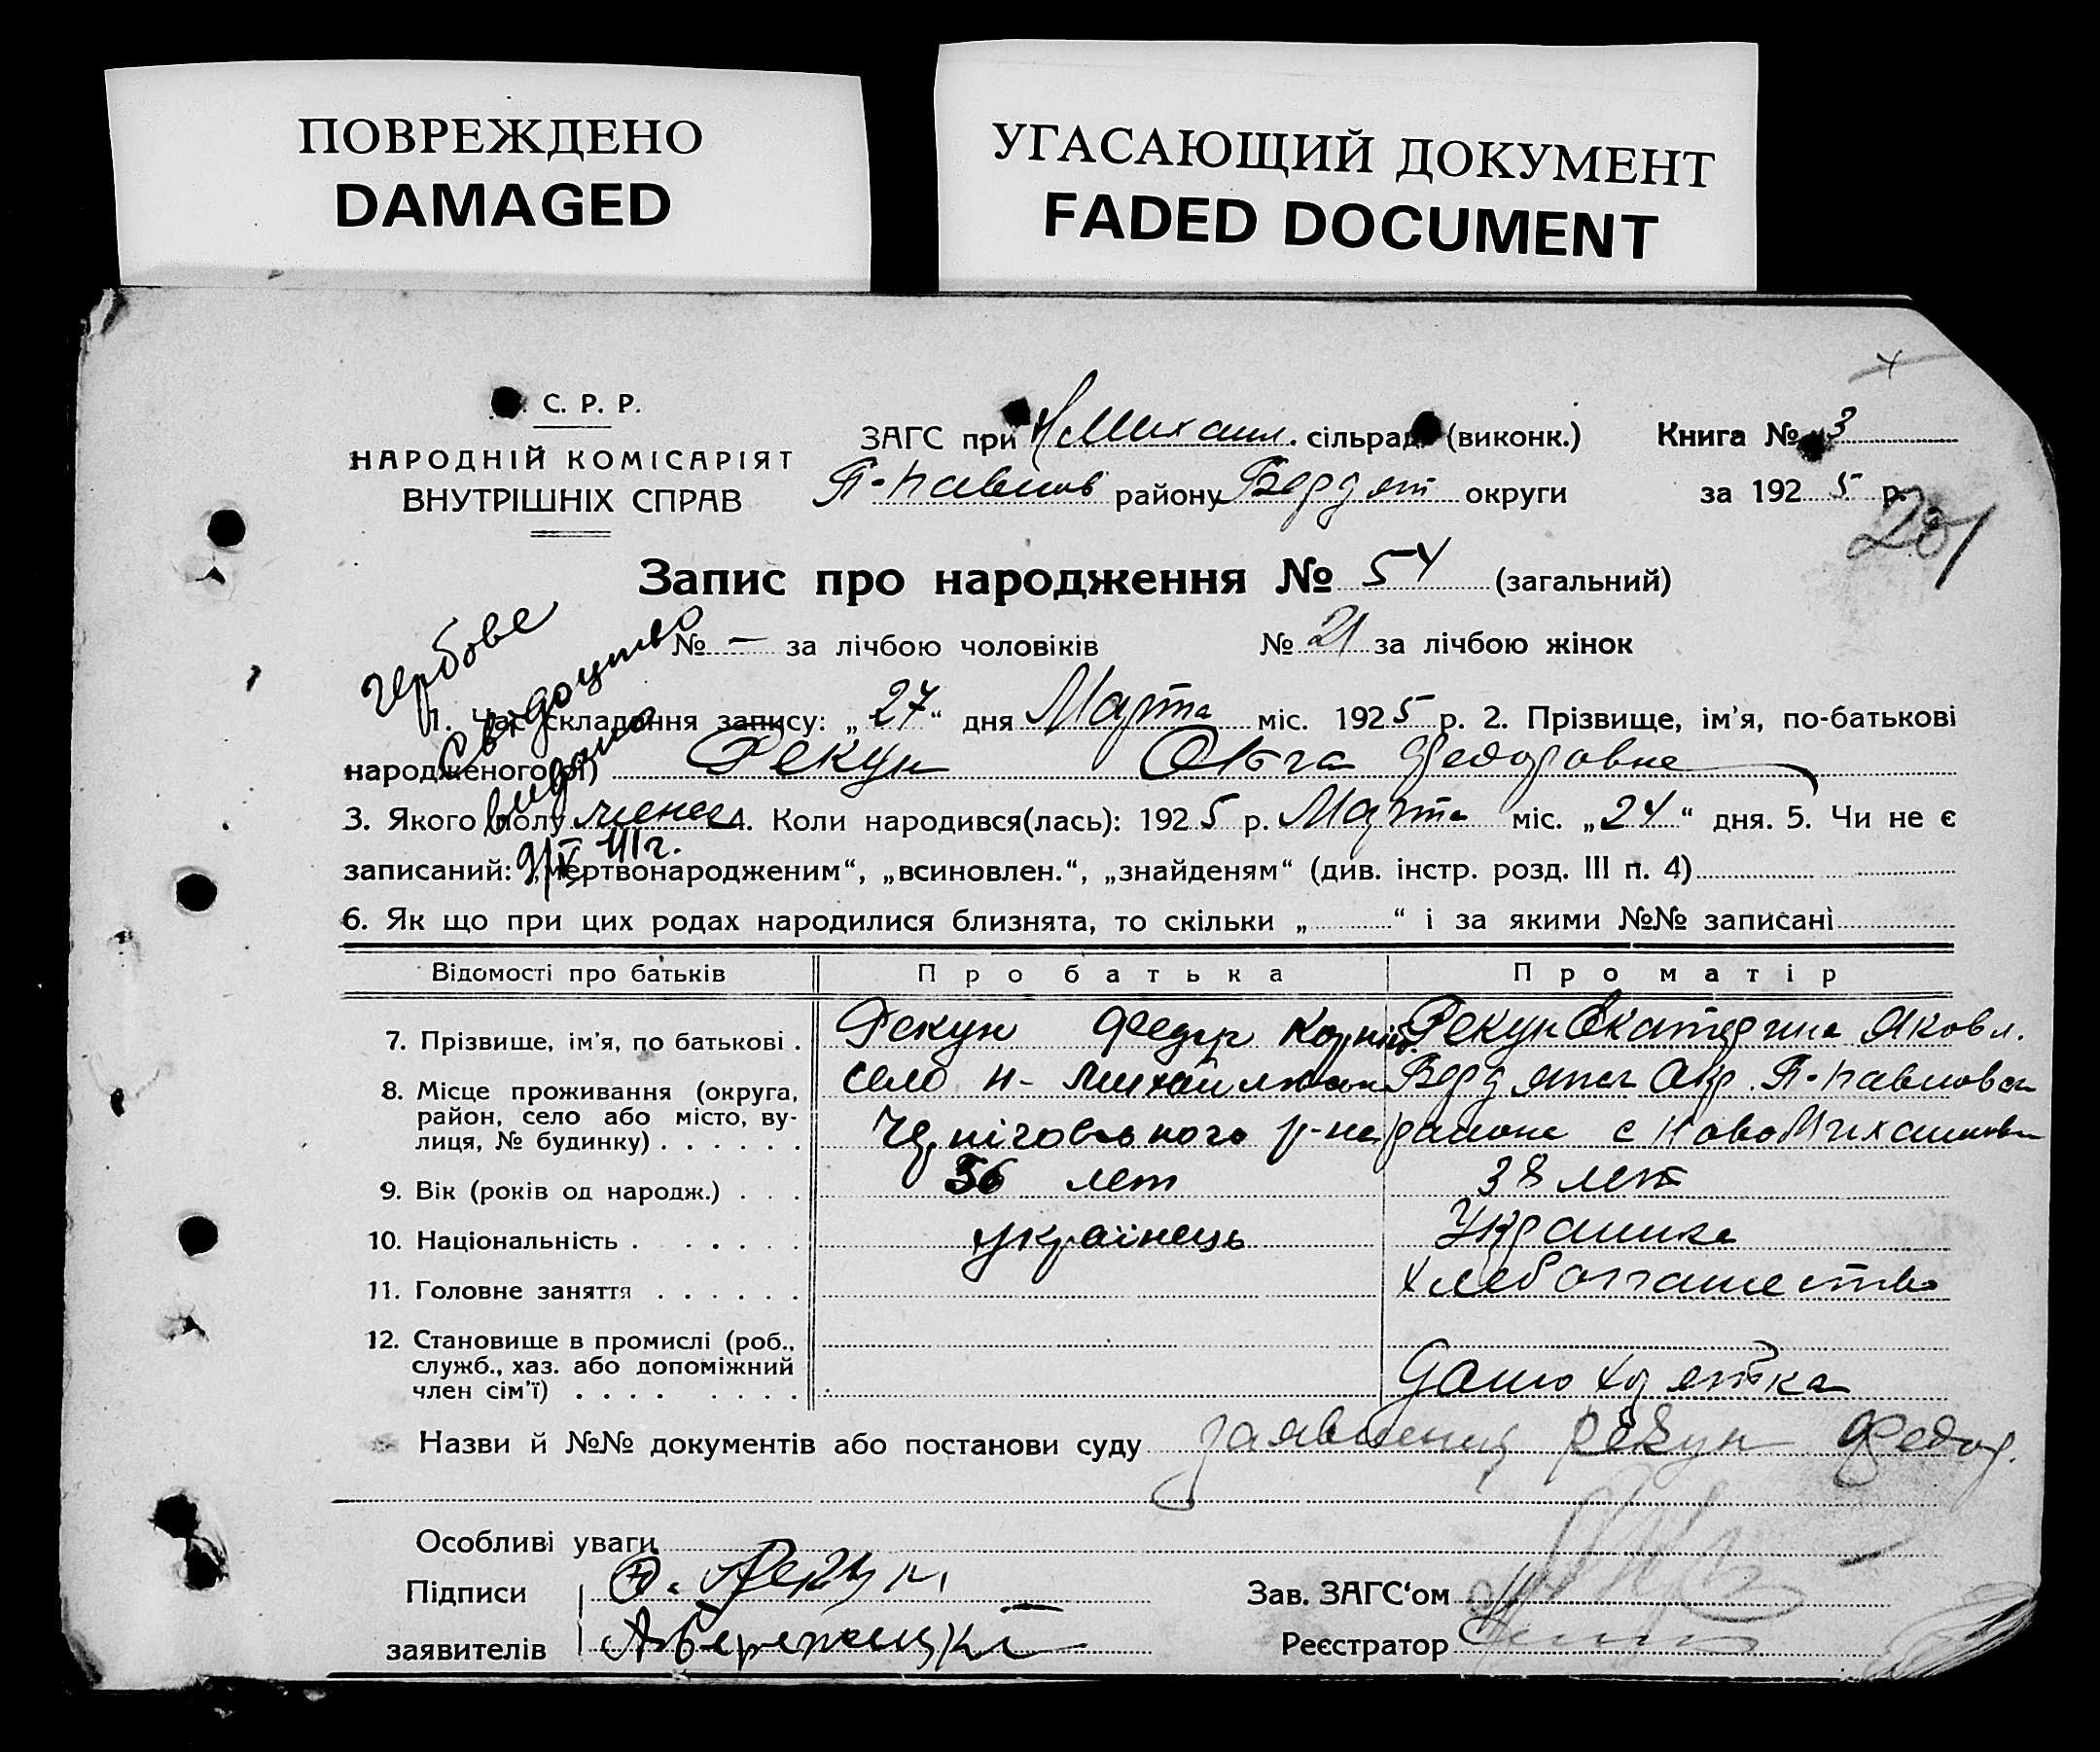 ПОВРЕЖДЕНО
DAMAGED
УГАСАЮЩИЙ ДОКУМЕНТ
FADED DOCUMENT
С. Р. Р.
НАРОДНІЙ КОМІСАРІЯТ
ВНУТРІШНІХ СПРАВ
ЗАГС при Н Михаил. сільрад (виконк.)
П-Павлов району Бердят округи
Книга № 3
за 1925 р.
201
Запис про народження № 54 (загальний)
№ — за лічбою чоловіків № 21 за лічбою жінок
гербове
свідоцтво
видано
9/V 41 г.
1. Час складання запису: „27“ дня Марта міс. 1925 р. 2. Прізвище, ім’я, по-батькові
народженого(ої) Рекун Ольга Федоровна
3. Якого полу женск 4. Коли народився(лась): 1925 р. Марта міс. „24“ дня. 5. Чи не є
записаний: „мертвонародженим“, „всиновлен.“, „знайденям“ (див. інстр. розд. III п. 4)
6. Як що при цих родах народилися близнята, то скільки „ “ і за якими №№ записані
Відомості про батьків Про батька Про матір
7. Прізвище, ім’я, по батькові . Рекун Федір Корній. Рекун Екатерина Яковл.
8. Місце проживання (округа, село Н- Михайловка Бердянск Окр. П-Павловск
район, село або місто, ву-
лиця, № будинку) . . . . . . Черніговського р-на района с Ново Михайловка
9. Вік (років од народж.) . . . 36 лет 38 лет
10. Національність . . . . . . українець Украинка
11. Головне заняття . . . . . . хлебопашество
12. Становище в промислі (роб.,
служб., хаз. або допоміжний
член сім’ї) . . . . . . . . домохозяйка
Назви й №№ документів або постанови суду заявлению Рекун Федор.
Особливі уваги
Підписи Ф. Рекун
заявителів
Зав. ЗАГС‘ом
Реєстратор